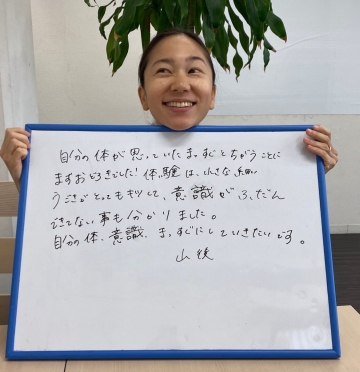 自分の体が思っていたまっすぐとちがうことに
まずおどろきでした!体験は、小さな細い
うごきがとってもキツくて、意識がふだん
できてない事も分かりました。
自分の体、意識、まっすぐにしていきたいです。
山